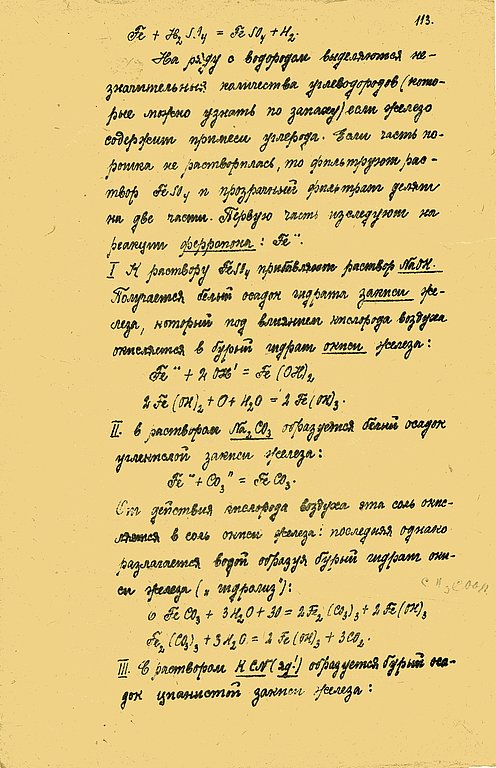 113.
Fe + H₂SO₄ = FeSO₄ + H₂.
На ряду с водородом выделяются не-
значительныя количества углеводородов (кото-
рые можно узнать по запаху) если железо
содержит примеси углерода. Если часть по-
рошка не растворилась, то фильтруют рас-
твор FeSO₄ и прозрачный фильтрат делят
на две части. Первую часть изследуют на
реакции ферроиона: Fe¨.
I К раствору FeSO₄ прибавляют раствор NaOH.
Получается белый осадок гидрата закиси же-
леза, который под влиянием кислорода воздуха
окисляется в бурый гидрат окиси железа:
Fe¨ + 2OH' = Fe(OH)₂
2Fe(OH)₂ + O + H₂O = 2Fe(OH)₃.
II. в раствором Na₂CO₃ образуется белый осадок
углекислой закиси железа:
Fe¨ + CO₃" = FeCO₃.
От действия кислорода воздуха эта соль окис-
ляется в соль окиси железа: последняя однако
разлагается водой образуя бурый гидрат оки-
си железа („гидролиз"):
6FeCO₃ + 3H₂O + 3O = 2Fe₂(CO₃)₃ + 2Fe(OH)₃
Fe₂(CO₃)₃ + 3H₂O = 2Fe(OH)₃ + 3CO₂.
III. С раствором KCN (яд!) образуется бурый оса-
док цианистой закиси железа: